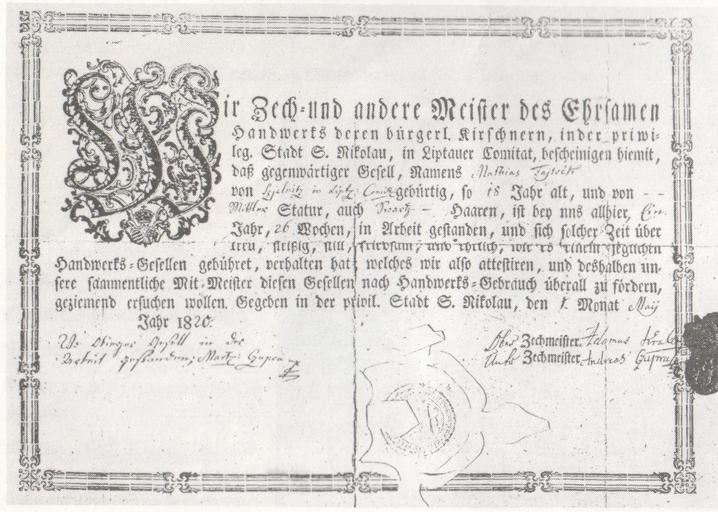 Wir Zech-und andere Meister des Ehrsamen
Handwerks deren bürgerl. Kirschnern, in der priwi-
leg. Stadt S. Nikolau, in Liptauer Comitat, bescheinigen hiemit,
daß gegenwärtiger Gesell, Namens Mathias
von in Lipt: gebürtig, so 18 Jahr alt, und von - -
Mittler Statur, auch Haaren, ist bey uns allhier,
Jahr, 26 Wochen, in Arbeit gestanden, und sich solcher Zeit über
treu, fleißig, still, friedsam, und ehrlich, wie es einem jeglichen
Handwerks-Gesellen gebühret, verhalten hat; welches wir also attestiren, und deshalben un-
sere sammentliche Mit-Meister diesen Gesellen nach Handwerks-Gebrauch überall zu fördern,
geziemend ersuchen wollen. Gegeben in der privil. Stadt S. Nikolau, den 1. Monat Maij
Jahr 1820.
Wo Obiger Gesell in der
Arbeit gestanden; Mart:
Ober Zechmeister. Adamus
Zechmeister. Andreas